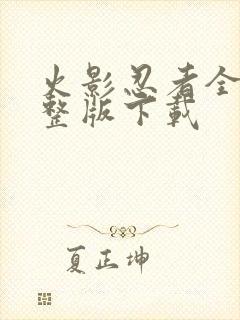 火影忍者全
整版下载
夏正坤